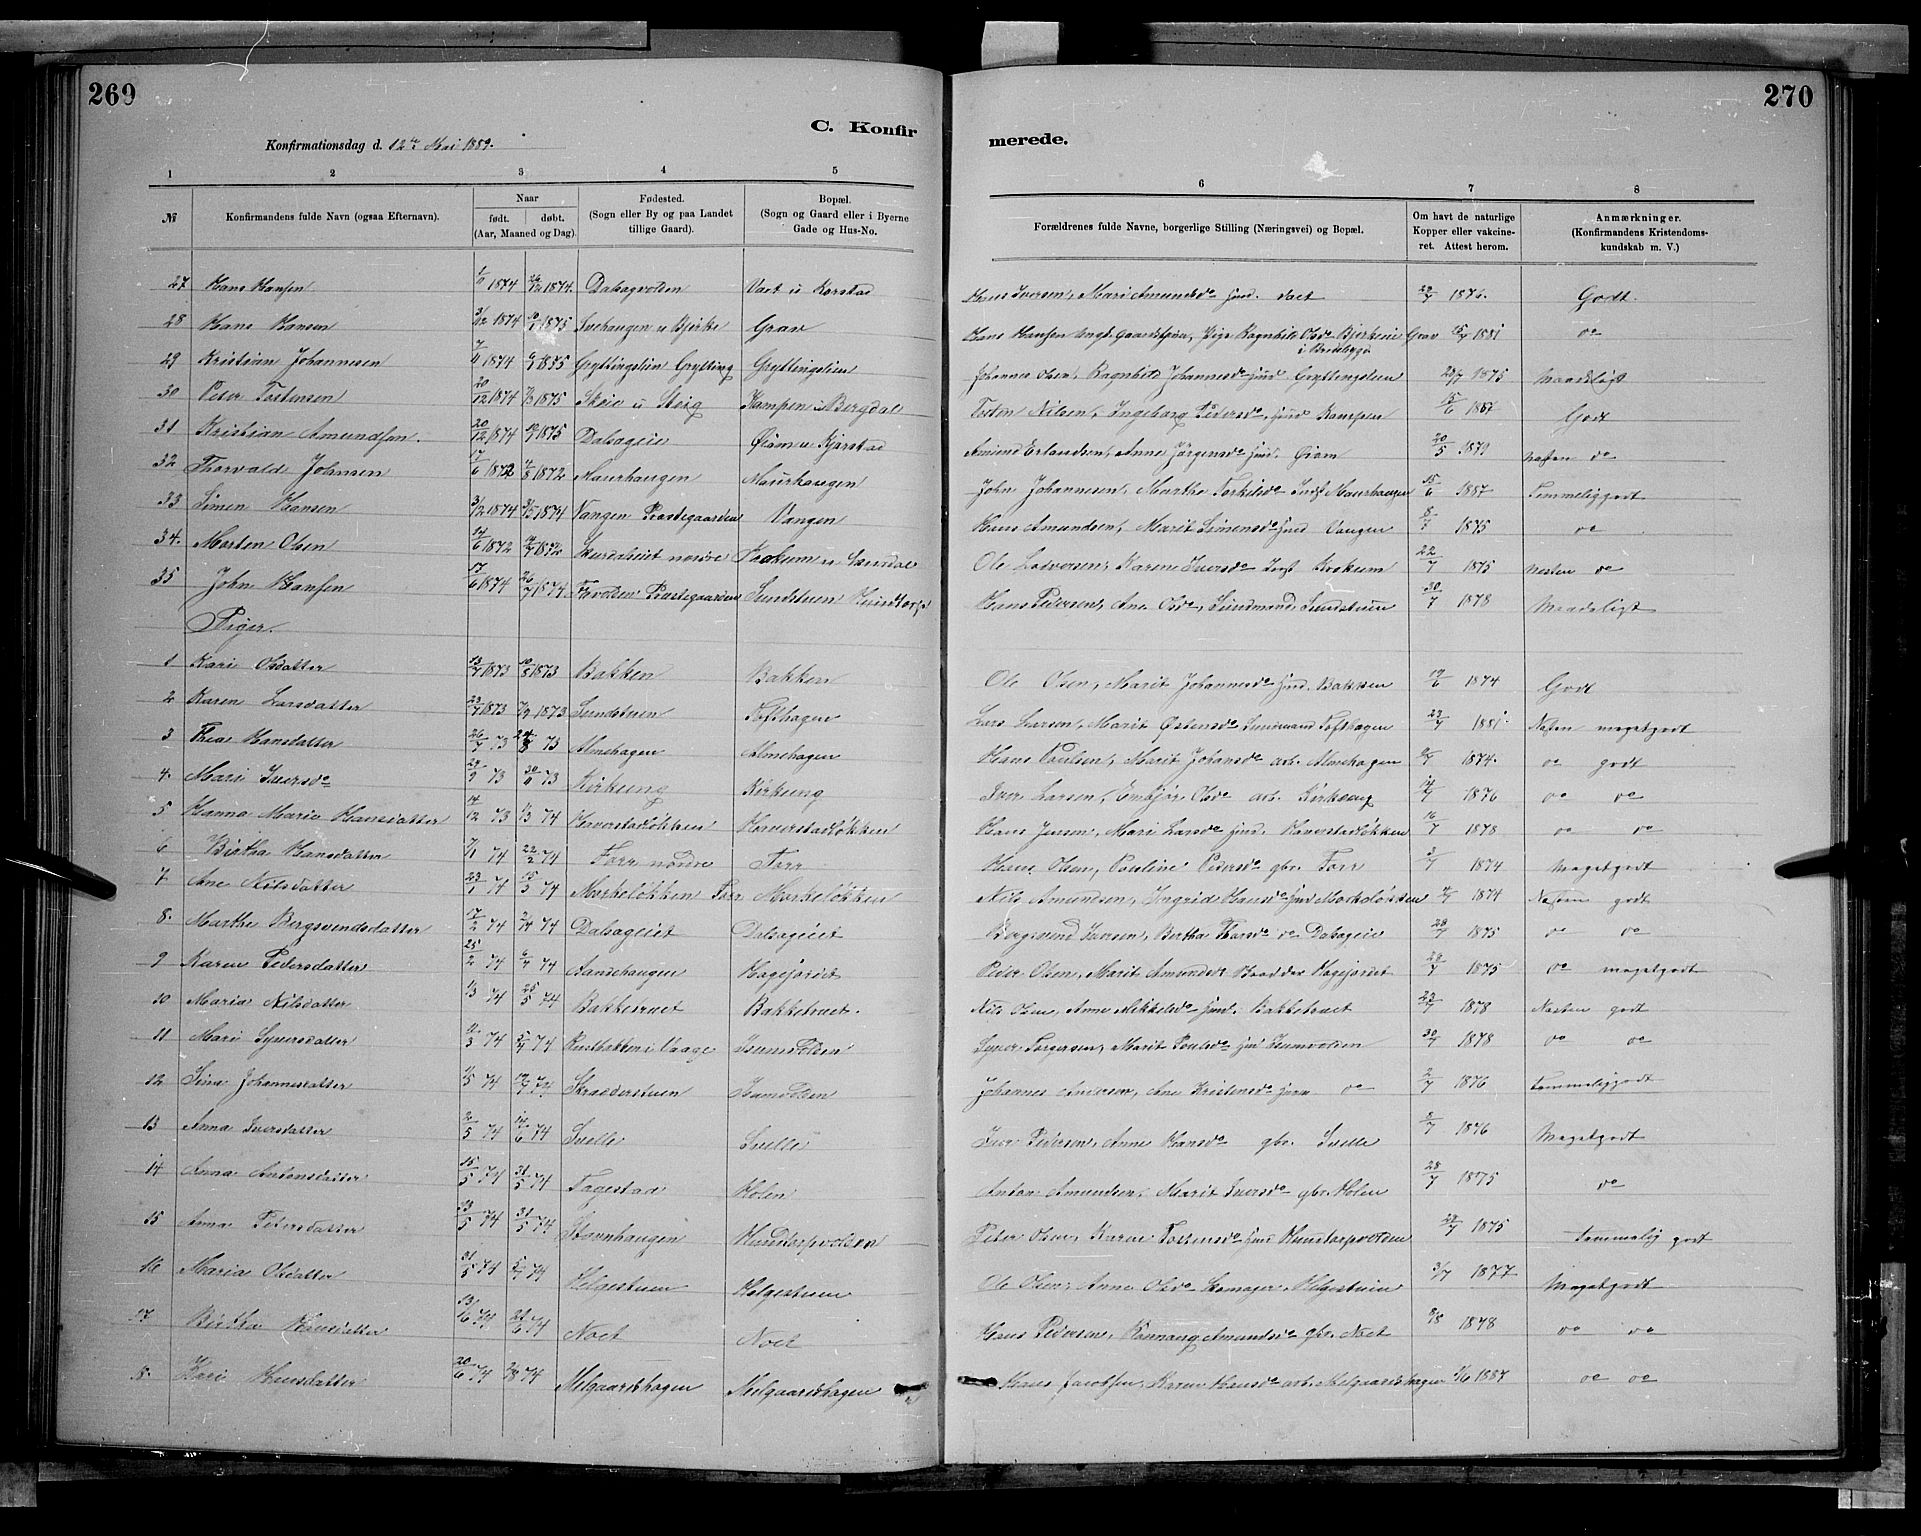 269
270
C. Konfir
merede.
Konfirmationsdag d. 12te Mai 1889.
1 2 3 4 5
6 7 8
№ Konfirmandens fulde Navn (ogsaa Efternavn). Naar født. døbt. (Aar, Maaned og Dag). Fødested. (Sogn eller By og paa Landet tillige Gaard). Bopæl. (Sogn og Gaard eller i Byerne Gade og Hus-No.
Forældrenes fulde Navne, borgerlige Stilling (Næringsvei) og Bopæl. Om havt de naturlige Kopper eller vakcineret. Attest herom. Anmærkninger. (Konfirmandens Kristendomskundskab m. V.)
27 Hans Hansen 1874 1874. Dalsagvolden Vaet u Korstad Hans Iversen, Mari Amundsdr 1876. Godt.
28 Hans Hansen 31/12 1874 1875 Svehaugen u Bjerke Grav Hans Hansen Pige Ragnhild Olsdr Grav 1881 do
29 Kristian Johannesen 7/11 1874 1875 Gryttingslien Grytting Gryttingslien Johannes Olsen, Ragnhild Johannesdr Gryttingslien 1875 Maadeligt
30 Peter Tostensen 20/12 1874 1875 Skeie u Steig Kampen u Bergdal Nilsen, Ingeborg Pedersdr Kampen 15/6 1887 Godt
31 Kristian Amundsen. 20/12 1874 1875 Dalsageie u Kjørstad Amund Erlandsen, Anne Jørgensdr 20/5 1879 Næsten do
32 Thorvald Johnsen 17/6 1872 1872 Maurhaugen Maurhaugen John Johannesen, Marthe Torkilsdr Inds Maurhaugen 15/6 1887 Temmeliggodt
33 Simen Hansen 1874 1874 Vangen Præstegaarden Vangen Hans Amundsen, Marit Simensdr Vangen 8/7 1875 do
34. Morten Olsen 1872 1872 nordre Krokum Ole Karen Iversdr Inds Krokum 22/7 1875 Næsten do
35 John Hansen 17/6 1874 26/7 1874 Præstegaarden Sundstuen Hundtorp Hans Pedersen, Ane Olsdr, Sundmand, Sundstuen 30/7 1878 Maadeligt
Piger.
1 Kari Olsdatter 13/7 1873 10/8 1873 Bakken Bakken Ole Olsen, Marit Johannesdr Bakken 19/6 1874 Godt
2 Karen Larsdatter 23/7 1873 1873 Sundstuen Tofthagen Lars Larsen, Marit Østensdr Sundmand Tofthagen 23/7 1881 Næsten megetgodt
3 Thea Hansdatter 26/7 73 73 Almehagen Almehagen Hans Poulsen, Marit Johansdr arb. Almehagen 1874. do godt
4. Mari Iversdr 29/9 73 30/11 73 Kirkeng Kirkeng Iver Larsen, Embjør Olsdr arb. Kirkeng 14/7 1876 do do
5 Hanna Marie Hansdatter 14/12 73 1/3 74 Haverstadløkken Haverstadløkken Hans Jensen, Mari Larsdr Haverstadløkken 16/7 1878 do do
6 Birtha Hansdatter 74 22/2 74 Forr nordre Forr Hans Olsen, Pauline Pedersdr gbr. Forr 3/7 1874 Megetgodt
7 Ane Nilsdatter 23/1 74 15/3 74 Morkeløkken Forr Morkeløkken Nils Amundsen, Ingrid Hansdr Morkeløkken 1874 Næsten godt
8. Marthe Bergsvendsdatter 17/2 74 74 Dalsageiet Dalsageiet Bergsvend Iversen, Bertha Thorsdr do Dalsageie 28/7 1875 do do
9 Karen Pedersdatter 25/2 74 6/4 74 Sandehaugen Hagejordet Peder Olsen, Marit Amundsdr Hagejordet 28/7 1875 do megetgodt
10 Maria Nilsdatter 1/3 74 25/5 74 Bakketruet Bakketruet. Nils Olsen, Anne Mikkelsdr Bakketruet 23/7 1878 Næsten godt
11 Mari Syversdatter 2/3 74 5/4 74 i Vaage Isumvolden Syver Torgersen, Marit Poulsdr Isumvolden 30/7 1878 do do
12 Sina Johannesdatter 1/5 74 19/7 74 Skrædderstuen Johannes Andersen, Ane Kristensdr do 2/7 1876 Temmeliggodt
13 Anna Iversdatter 2/5 74 14/6 74 Svelle Svelle Iver Pedersen, Anne Hansdr gbr. Svelle 8/7 1876 Megetgodt
14 Anna Antonsdatter 15/5 74 31/5 74 Fagestad Holen Anton Amundsen, Marit Iversdr gbr. Holen 28/7 1875 do
15 Anna Petersdatter 23/5 74 31/5 74 Stavnhaugen Hundtorpvolden Peter Olsen, Karen Tostensdr Hundtorpvolden 28/7 1875 Temmelig godt
16 Maria Olsdatter 31/5 74 5/7 74 Helgestuen Helgestuen Ole Olsen, Anne Olsdr Skomager, Helgestuen 3/7 1877 Megetgodt
17 Birtha Hansdatter 74 74 Noet Noet Hans Pedersen, Rønnaug Amundsdr gbr. Noet 1878 do do
18. Kari Hansdatter 20/6 74 74 Melgaardshagen Melgaardshagen Hans Jacobsen, Karen Hansdr arb. Melgaardshagen 1887 do do